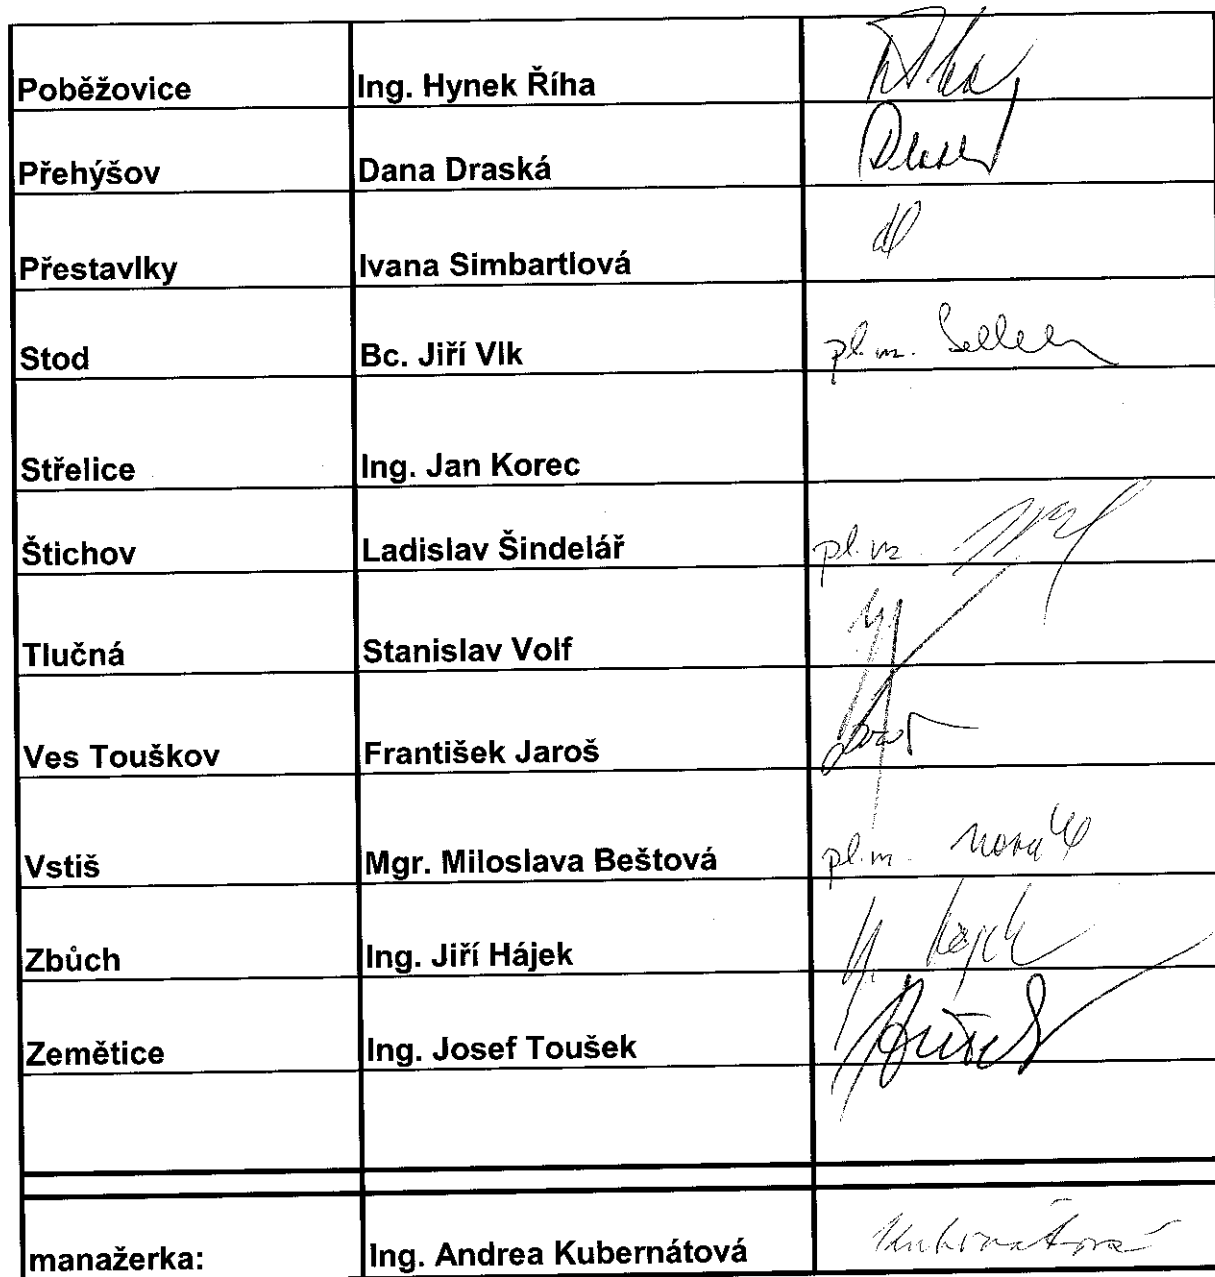 Poběžovice Ing. Hynek Říha
Přehýšov Dana Draská
Přestavlky Ivana Simbartlová
Stod Bc. Jiří Vlk
Střelice Ing. Jan Korec
Štichov Ladislav Šindelář
Tlučná Stanislav Volf
Ves Touškov František Jaroš
Vstiš Mgr. Miloslava Beštová
Zbůch Ing. Jiří Hájek Hájek
Zemětice Ing. Josef Toušek
manažerka: Ing. Andrea Kubernátová Kubernátová